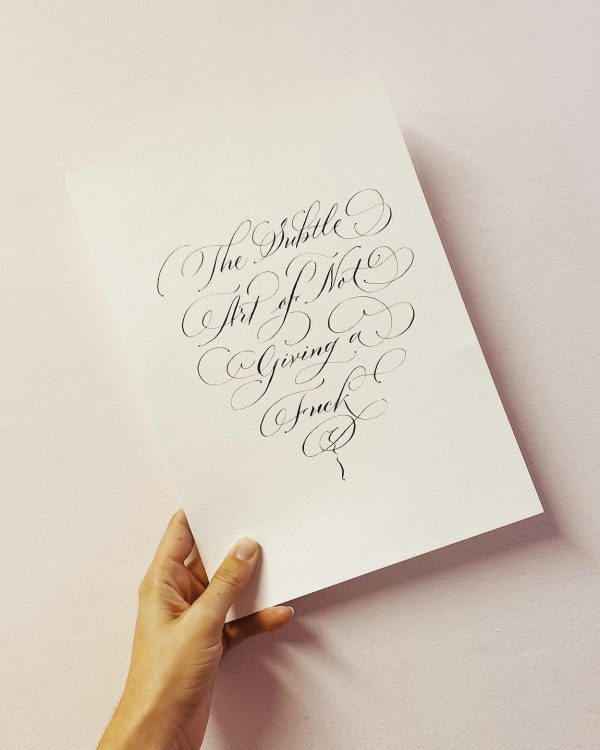 The Subtle
Art of Not
Giving a
Fuck